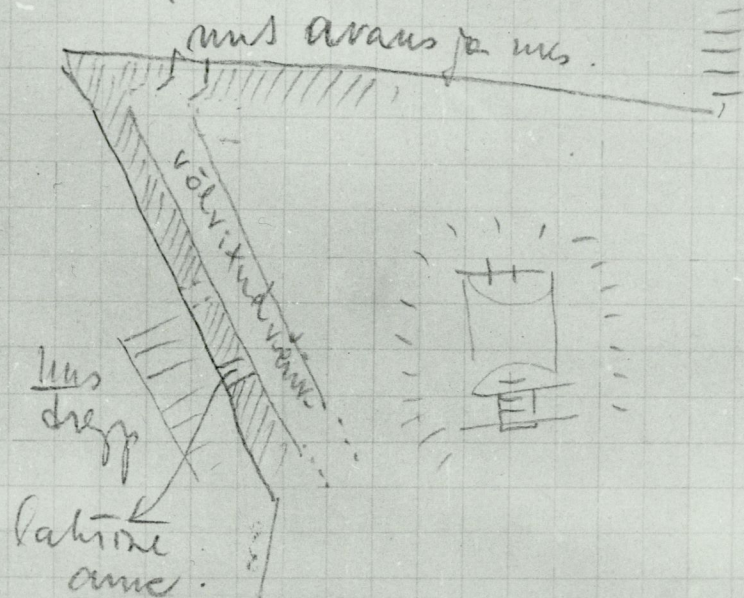 uus avaus ja uks.
võlvitud
uus
trepp
Lahtine